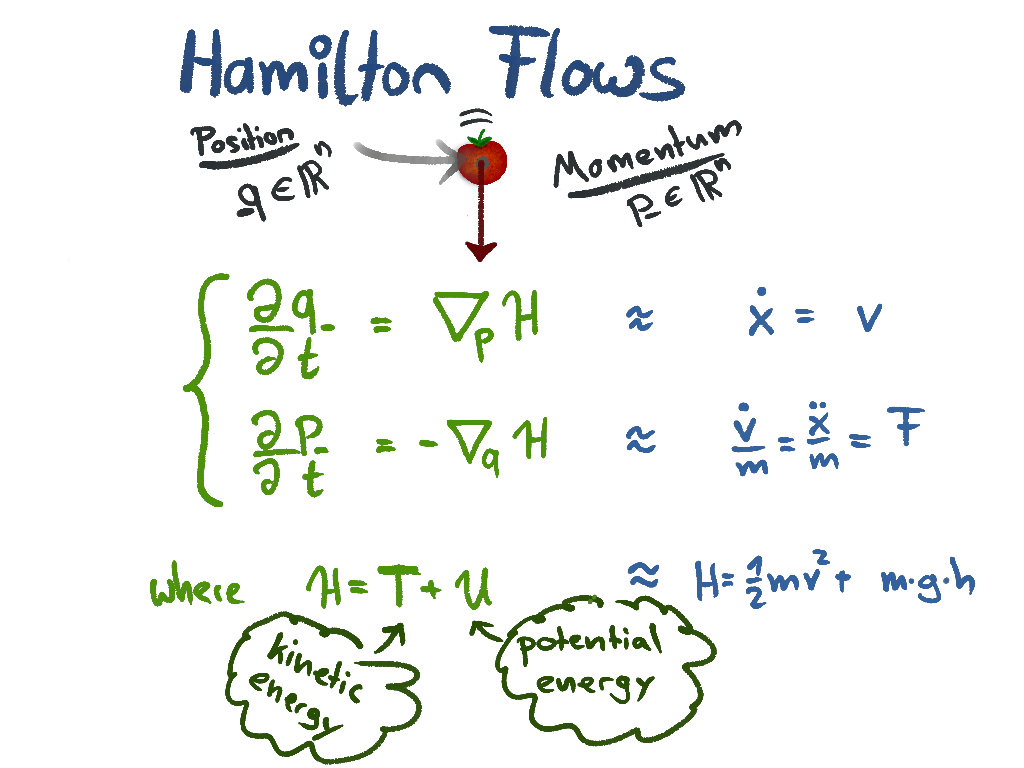 Hamilton Flows
Position
q ∈ ℝⁿ
Momentum
p ∈ ℝⁿ
∂q/∂t = ∇ₚ H ≈ ẋ = v
∂p/∂t = - ∇q H ≈ v̇/m = ẍ/m = F
where H = T + U ≈ H = 1/2 mv² + m·g·h
kinetic
energy
potential
energy